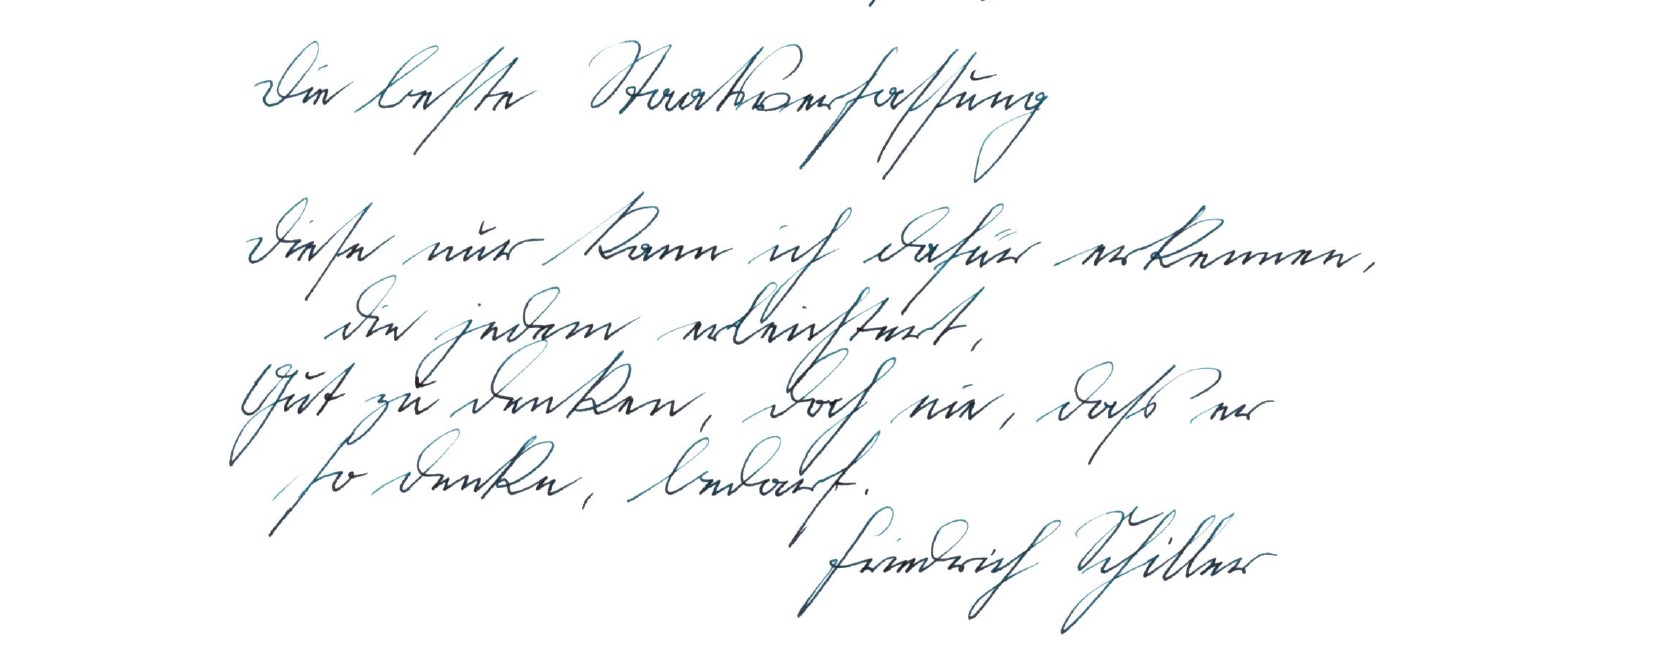 Die beste Staatsverfassung
Diese nur kann ich dafür erkennen,
die jedem erleichtert,
Gut zu denken, doch nie, daß er
so denke, bedarf.
Friedrich Schiller